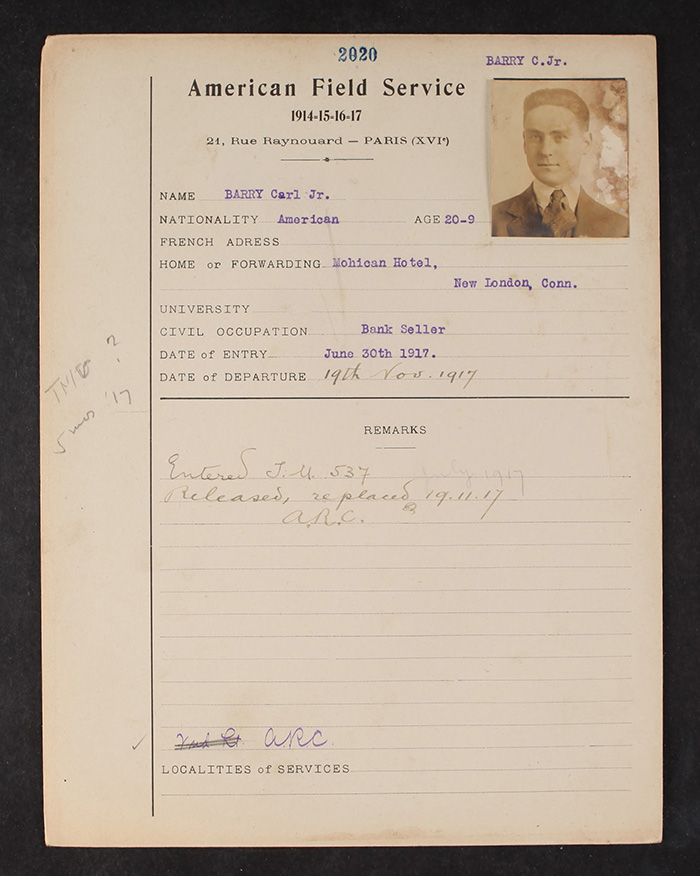 2020
BARRY C.Jr.
American Field Service
1914-15-16-17
21, Rue Raynouard — PARIS (XVIe)
NAME BARRY Carl Jr.
NATIONALITY American AGE 20-9
FRENCH ADRESS
HOME or FORWARDING Mohican Hotel,
New London, Conn.
UNIVERSITY
CIVIL OCCUPATION Bank Seller
DATE of ENTRY June 30th 1917.
DATE of DEPARTURE 19th Nov. 1917
?
5 mos '17
REMARKS
Entered T.M. 537 July 1917
Released, replaced 19.11.17
A.R.C.
ARC
LOCALITIES of SERVICES